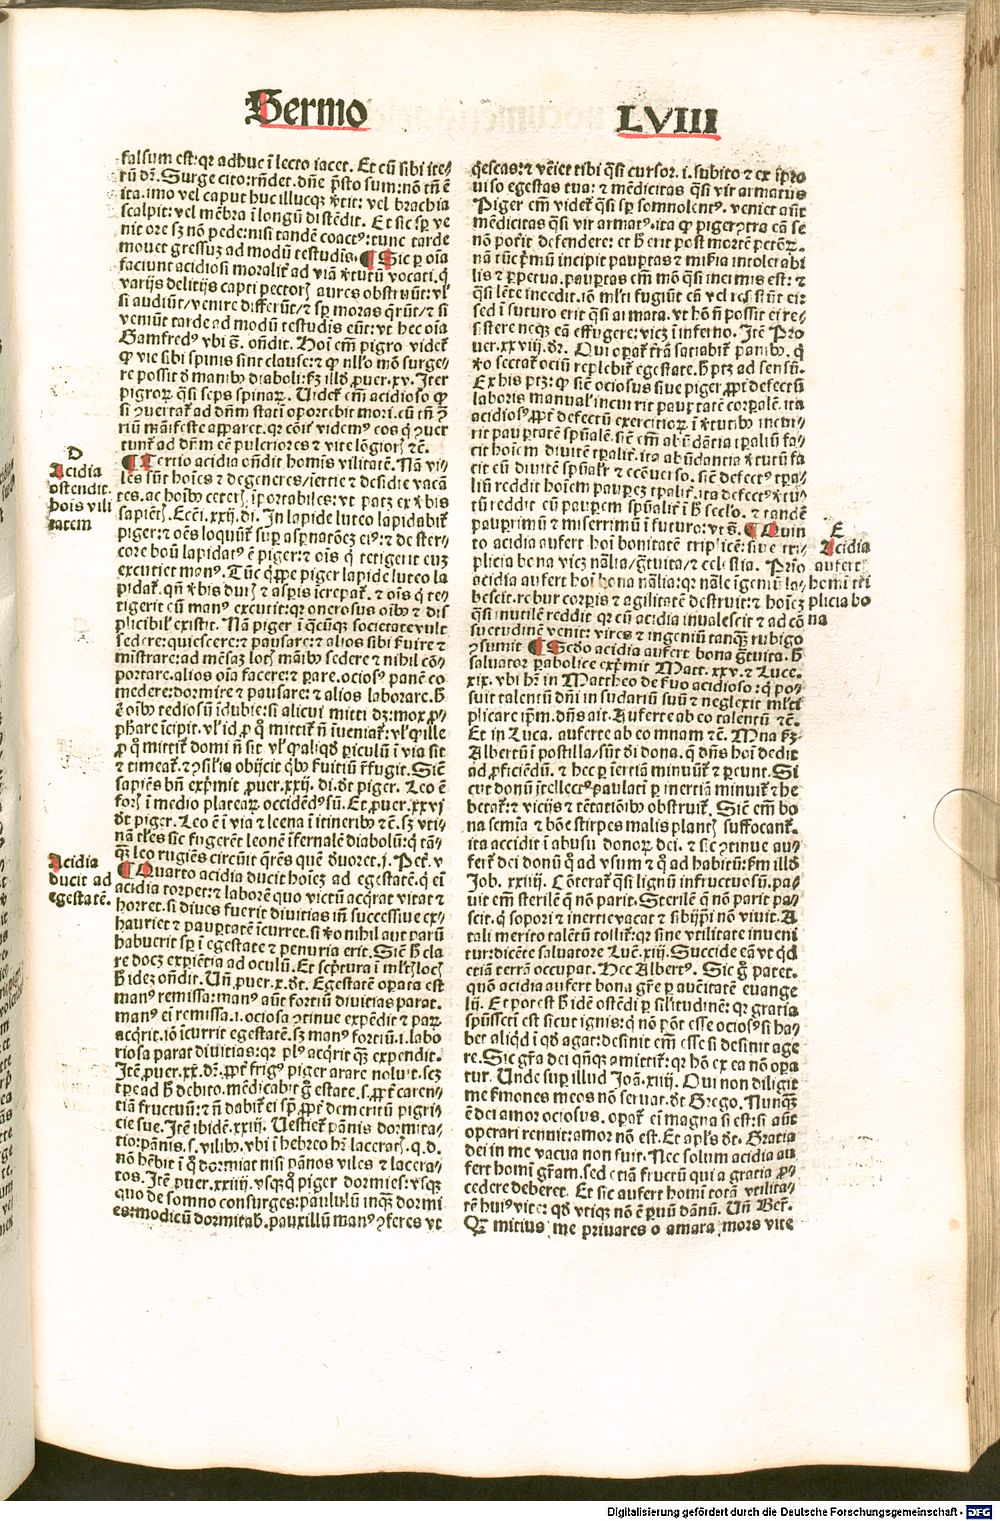 Sermo LVIII
falsum est: qr adhuc ī lecto iacet. Et cū sibi ite⸗
rū dr̄. Surge cito: rn̄det. dn̄e p̄sto sum: nō tn̄ ē
ita. imo vel caput huc illucqz v̄tit: vel brachia
scalpit: vel mēbra ī longū distēdit. Et sic sp̄ ve
nit ore sz nō pede: nisi tandē coactꝰ: tunc tarde
mouet gressuz ad modū testudis. ¶ Sic ꝑ oīa
faciunt acidiosi moralit̄ ad viā v̄tutū vocati. q̄
varijs delitijs capti pectorꝭ aures obstruūt: vl̓
si audiūt/ venire differūt/ ⁊ sp̄ moras q̄rūt/ ⁊ si
veniūt tarde ad modū testudis eūt: vt hec oīa
Gamfredꝰ vbi s̄. ondit. Hoī em̄ pigro videt̄
ꝙ vie sibi spinis sint clause: ⁊ ꝙ nll̓o mō surge⸗
re possit d̄ manibꝰ diaboli: k̄z illd̓ ꝓuer. xv. Iter
pigroꝝ q̄si seps spinaꝝ. Videt̄ em̄ acidioso ꝙ
si ꝯuertat̄ ad dn̄m statī oportebit mori. cū tn̄ ꝯ̄
riū māifeste apparet. qr cōit̄ videmꝰ eos q̄ ꝯuer
tunt̄ ad dn̄m eē pulcriores ⁊ vite lōgiorꝭ ⁊c̄.
¶ Tertio acidia on̄dit homīs vilitatē. Nā vi⸗
les sūt hoīes ⁊ degeneres/ iertie ⁊ desidie vacā
tes. ac hoībꝰ ceterꝭ īportabiles: vt patz ex v̄bis
sapiētꝭ. Ecc̄i. xxij. di. In lapide luteo lapidabit̄
piger: ⁊ oēs loquūt̄ sup asp̄natōez eiꝰ: ⁊ de ster⸗
core boū lapidatꝰ ē piger: ⁊ oīs q̄ tetigerit euz
excutiet manꝰ. Tūc q̄ppe piger lapide luteo la
pidat̄. qn̄ v̄bis durꝭ ⁊ asp̄is īcrepat̄. ⁊ oīs q̄ te⸗
tigerit eū manꝰ excutit: qr onerosus oībꝰ ⁊ dis
plicibil̓ existit. Nā piger ī q̄cūqz societate vult
sedere: quiescere: ⁊ pausare: ⁊ alios sibi s̄uire ⁊
mīstrare: ad mēsaz lotꝭ māibꝰ sedere ⁊ nihil cō⸗
portare. alios oīa facere: ⁊ ꝑare. ociosꝰ panē co
medere: dormire ⁊ pausare: ⁊ alios laborare. h̄
ē oībꝰ tediosū īdubie: si alicui mitti dz: mox ꝓ⸗
ph̄are īcipit. vl̓ id ꝓ q̄ mittit̄ n̄ īueniat̄: vl̓ ꝙ ille
ꝓ q̄ mittit̄ domi n̄ sit vl̓ ꝙ aliqd̓ ꝑiculū ī via sit
⁊ timeat̄. ⁊ ꝯsilia obijcit qͥbꝰ s̄uitiū r̄fugit. Sic̄
sapiēs bn̄ exp̄mit ꝓuer. xxij. di. d̄t piger. Leo ē
forꝭ ī medio plateaꝝ occidēdꝰ sū. Et ꝓuer. xxvj
d̄t piger. Leo ē ī via ⁊ leena ī itineribꝰ ⁊c̄. sz vti⸗
nā tl̓es sic fugerēt leonē īfernalē diabolū: q̄ tā⸗
qz̄ leo rugiēs circūit q̄rēs quē d̄uoret. j. Pet̄. v
¶ Quarto acidia ducit hoīez ad egestatē. q̄ ei
acidia torpet: ⁊ laborē quo victū acq̄rat vitat ⁊
horret. si diues fuerit diuitias im̄ successiue ex⸗
hauriet ⁊ pauꝑtatē īcurret. si v̄o nihil aut parū
habuerit sp̄ ī egestate ⁊ penuria erit. Sic̄ h̄ cla
re docz expiētia ad oculū. Et sc̄ptura ī ml̓tꝭ locꝭ
h̄ idez on̄dit. Vn̄ ꝓuer. x. d̄t. Egestatē oꝑata est
manꝰ remissa: manꝰ aūt fortiū diuitias parat.
manꝰ ei remissa. i. ociosa ꝯtinue expēdit ⁊ paꝝ
acq̄rit. iō īcurrit egestatē. sz manꝰ fortiū. i. labo
riosa parat diuitias: qr plꝰ acq̄rit qz̄ expendit.
Itē ꝓuer. xx. dr̄. ꝓpt̄ frigꝰ piger arare noluit. sez
tp̄e ad h̄ debito. mēdicabit g̓ estate. s. ꝓpt̄ caren⸗
tiā fructuū: ⁊ n̄ dabit̄ ei sp̄. ꝓpt̄ demeritū pigri⸗
cie sue. Itē ibidē. xxiij. Vestiet̄ pānis dormita⸗
tio: pānis. s. vilibꝰ. vbi ī hebreo hr̄ laceratꝭ. q. d.
nō hēbit ī q̄ dormiat nisi pānos viles ⁊ lacera⸗
tos. Itē ꝓuer. xxiiij. vsqꝫ q̄ piger dormies: vsqꝫ
quo de somno consurges: paululū inqz̄ dormi
es: modicū dormitab. pauxillū manꝰ ꝯseres vt
D
Acidia
ostendit
hoīs vili
tatem
Acidia
ducit ad
egestatē.
q̄escas: ⁊ vēiet tibi q̄si cursor. i. subito ⁊ ex īpro
uiso egestas tua: ⁊ mēdicitas q̄si vir armatus
Piger em̄ videt̄ q̄si sp̄ somnolentꝰ. veniet aūt
mēdicitas q̄si vir armatꝰ. ita ꝙ piger ꝯtra eā se
nō poīt defendere: et h̄ erit post mortē peccꝝ.
nā tūc p̄mū incipit pauꝑtas ⁊ mis̓ia intolerabi
lis ⁊ ꝑpetua. pauꝑtas em̄ mō q̄si inermis est: ⁊
q̄si lēte incedit. iō ml̓ti fugiūt eā vel resistūt ei:
sed ī futuro erit q̄si armata. vt hō n̄ possit ei re⸗
sistere neqꝫ eā effugere: vicz ī inferno. Itē Pro
uer. xxviij. dr̄. Qui oꝑat̄ trā̄ satiabit̄ panibꝰ. q̄
v̄o sectat̄ ociū replebit̄ egestate. h̄ ptz ad sensū.
Ex his ptz: ꝙ sic̄ ociosus siue piger ꝓpt̄ defectū
laboris manual̓ incurrit pauꝑtatē corꝑalē. ita
acidiosꝰ ꝓpt̄ defectū exercitioꝝ ī v̄tutibꝰ incur⸗
rit pauꝑtatē spūalē. sic̄ em̄ abūdātia tꝑaliū fa⸗
cit hoīem diuitē tꝑalit̄. ita abūdantia v̄tutū fa
cit eū diuitē spūalit̄ ⁊ ecōuerso. sic̄ defectꝰ tꝑa⸗
liū reddit hoīem pauꝑez tꝑalit̄. ita defectꝰ v̄tu⸗
tū reddit eū pauꝑem spūalit̄ ī h̄ sc̄lo. ⁊ tandē
pauꝑrimū ⁊ miserrimū ī futuro: vt s̄. ¶ Quin
to acidia aufert hoī bonitatē triplicē: siue tri⸗
plicia bona vicz nālia/ gr̄tuita/ ⁊ celestia. Primo
acidia aufert hoī bona nālia: qr nāle īgeniū la⸗
bescit. robur corꝑis ⁊ agilitatē destruit: ⁊ hoīez
q̄si inutilē reddit qr cū acidia inualescit ⁊ ad cō
suetudinē venit: vires ⁊ ingeniū tanqz̄ rubigo
ꝯsumit ¶ Scd̓o acidia aufert bona gr̄tuita. h̄
saluator ꝑabolice exp̄mit Matt. xxv. ⁊ Luce.
xix. vbi hr̄ in Mattheo de s̄uo acidioso: q̄ po⸗
suit talentū dn̄i in sudariū suū ⁊ neglexit ml̓ti
plicare ip̄m. dn̄s ait. Auferte ab eo talentū ⁊c̄.
Et in Luca. auferte ab eo mnam ⁊c̄. Mna k̄z
Albertū ī postilla/ sūt d̓i dona. q̄ dn̄s hoī dedit
ad ꝓficiēdū. ⁊ hec ꝑ īertiā minuūt̄ ⁊ ꝑeunt. Si
cut donū ītellectꝰ paulatī ꝑ inertiā minuit̄ ⁊ he
betat̄: ⁊ vicijs ⁊ tētatōibꝰ obstruit̄. Sic̄ em̄ bo
na semīa ⁊ bōe stirpes malis plantꝭ suffocant̄.
ita accidit ī abusu donoꝝ dei. ⁊ sic ꝯtinue au⸗
fert̄ dei donū q̄ ad vsum ⁊ q̄ ad habitū: k̄m illd̓
Job. xxiiij. Cōterat̄ q̄si lignū infructuosū. pa⸗
uit em̄ sterilē q̄ nō parit. Sterilē q̄ nō parit pa⸗
scit. q̄ sopori ⁊ inertie vacat ⁊ sibijp̄i nō viuit. A
tali merito talētū tollit̄: qr sine vtilitate inueni
tur: dicēte saluatore Luc̄. xiij. Succide eā vt qd̓
etiā terrā occupat. Hec Albertꝰ. Sic g̓ patet.
quō acidia aufert bona gr̄e ꝑ auc̄itatē euange
lij. Et potest h̄ idē ostēdi ꝑ sil̓itudinē: qr gratia
spūssctī est sicut ignis: q̄ nō pōt esse ociosꝰ si ha⸗
bet aliqd̓ ī qd̓ agat: desinit em̄ esse si desinit age
re. Sic gr̄a dei qn̄qꝫ amittit̄: qr hō ex ea nō oꝑa
tur. Vnde suꝑ illud Joā. xiiij. Qui non diligit
me s̄mones meos nō seruat. d̄t Grego. Nunqz̄
ē dei amor ociosus. oꝑat̄ ei magna si est: si aūt
operari rennuit: amor nō est. Et apl̓s d̄t. Gratia
dei in me vacua non fuit. Nec solum acidia au
fert homī gr̄am. sed etiā fructū qui a gratia ꝓ⸗
cedere deberet. Et sic aufert homi totā vtilita⸗
tē huiꝰ vite: qd̓ vtiqꝫ nō ē ꝑuū dānū. Vn̄ Ber̄.
Qꝫ mitius me priuares o amara mors vite
E
Acidia
aufert
homi tri
plicia bo
na
Digitalisierung gefördert durch die Deutsche Forschungsgemeinschaft - DFG